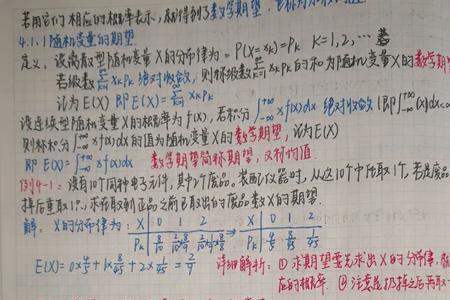 若用它们相应的概率表示,就得到了数学期望,也称为
4.1.1随机变量的期望
定义:设离散型随机变量X的分布律为:P(X=xk)=Pk K=1,2,…
若级数∑xkPk绝对收敛,则称级数∑xkPk的和为随机变量X的数学期
记为E(X) 即E(X)=∑xkPk
设连续型随机变量X的概率为f(x),若积分∫xf(x)dx绝对收敛(即∫
则称积分∫xf(x)dx的值为随机变量X的数学期望,记为E(X)
即E(X)=∫xf(x)dx 数学期望简称期望,又称均值
例4-1:设有10个同种电子元件,其中2个废品。装配仪器时,从这10个中任取1个,若是废品
择后重取1只,求在取到正品之前已取出的废品数X的期望.
解:X的分布律为: X 0 1 2 → X 0 1 2
Pk 8/10 2/10·8/9 2/10·1/9·8/8 Pk 4/5 8/45 1/45
E(X)=0×4/5+1×8/45+2×1/45=2/9 详细解析:①求期望要先求出X的分布律,
应的概率.②注意是扔掉之后再取一